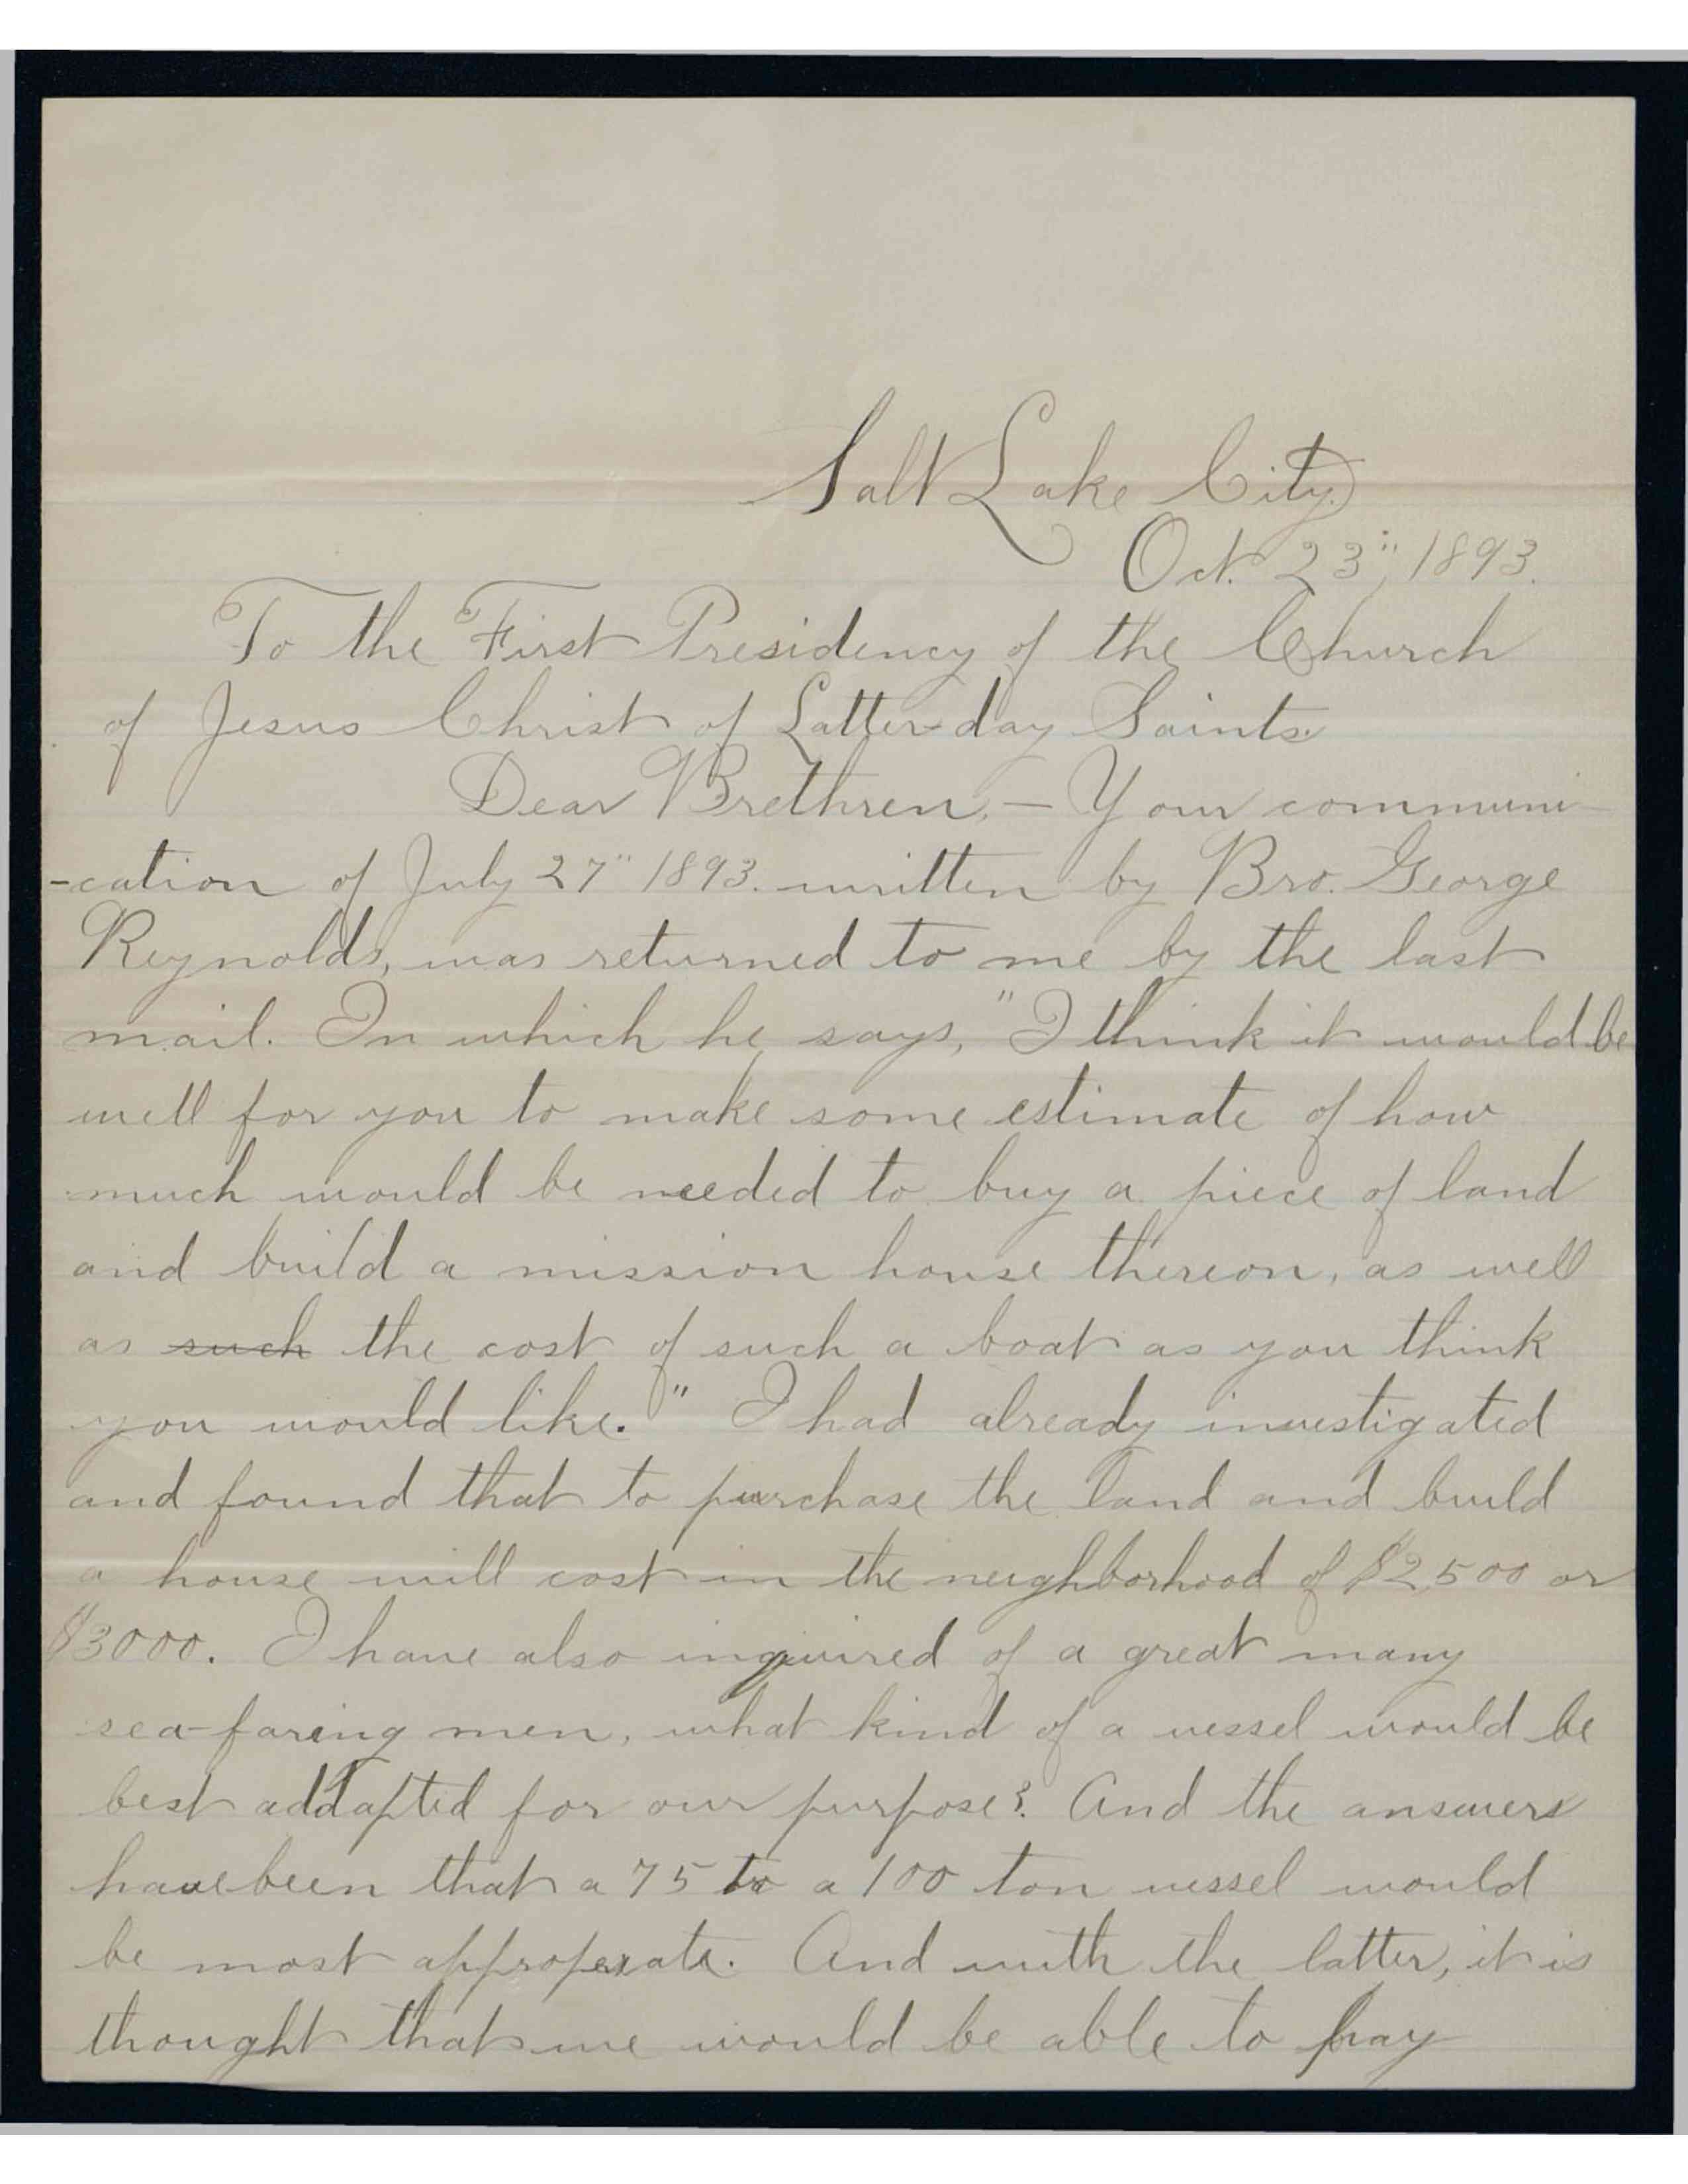 Salt Lake City.
Oct. 23", 1893.
To the First Presidency of the Church
of Jesus Christ of Latter-day Saints.
Dear Brethren, — Your communi-
-cation of July 27" 1893. written by Bro. George
Reynolds, was returned to me by the last
mail. In which he says, "I think it would be
well for you to make some estimate of how
much would be needed to buy a piece of land
and build a mission house thereon, as well
as such the cost of such a boat as you think
you would like." I had already investigated
and found that to purchase the land and build
a house will cost in the neighborhood of $2500 or
$3000. I have also inquired of a great many
sea-faring men, what kind of a vessel would be
best addapted for our purpose? And the answers
have been that a 75 to a 100 ton vessel would
be most approperate. And with the latter, it is
thought that we would be able to pay